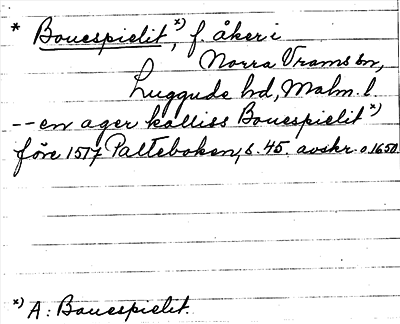 * Bouespielit *), f. åker i
Norra Vrams sn,
Luggude hd, Malm. l.
-- en ager kalliss Bouespielit *)
före 1517 Palteboken, s. 45. avskr. o. 1650.
*) A: Bauespielit.